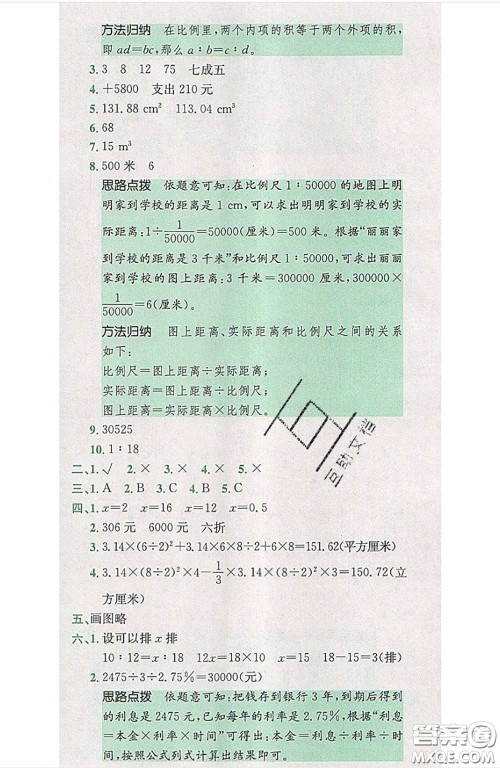 方法归纳 在比例里,两个内项的积等于两个外项的积,
即 ad=bc,那么 a∶b=c∶d。
3. 3 8 12 75 七成五
4. +5800 支出 210 元
5. 131.88 cm² 113.04 cm³
6. 68
7. 15 m³
8. 500 米 6
思路点拨 依题意可知:在比例尺 1∶50000 的地图上明
明家到学校的距离是 1 cm,可以求出明明家到学校的实
际距离:1÷1/50000=50000(厘米)=500 米。根据“丽丽
家到学校的距离是 3 千米”和比例尺 1∶50000,可求出丽丽
家到学校的图上距离:3 千米=300000 厘米,300000×
1/50000=6(厘米)。
方法归纳 图上距离、实际距离和比例尺之间的关系
如下:
比例尺=图上距离÷实际距离
实际距离=图上距离÷比例尺
图上距离=实际距离×比例尺
9. 30525
10. 1∶18
二、1. √ 2. × 3. × 4. × 5. ×
三、1. A 2. B 3. C 4. B 5. C
四、1. x=2 x=16 x=12 x=0.5
2. 306 元 6000 元 六折
3. 3.14×(6÷2)²+3.14×6×8÷2+6×8=151.62(平方厘米)
4. 3.14×(8÷2)²×4-1/3×3.14×(8÷2)²×3=150.72(立
方厘米)
五、画图略
六、1. 设可以排 x 排
10∶12=x∶18 12x=18×10 x=15 18-15=3(排)
2. 2475÷3÷2.75%=30000(元)
思路点拨 依题意可知:把钱存到银行 3 年,到期后得到
的利息是 2475 元,已知每年的利率是 2.75%,根据“利息
=本金×利率×时间”可得出:本金=利息÷利率÷时
间,按照公式列式计算出结果即可。
互助文档
答案圈
MXQE.COM